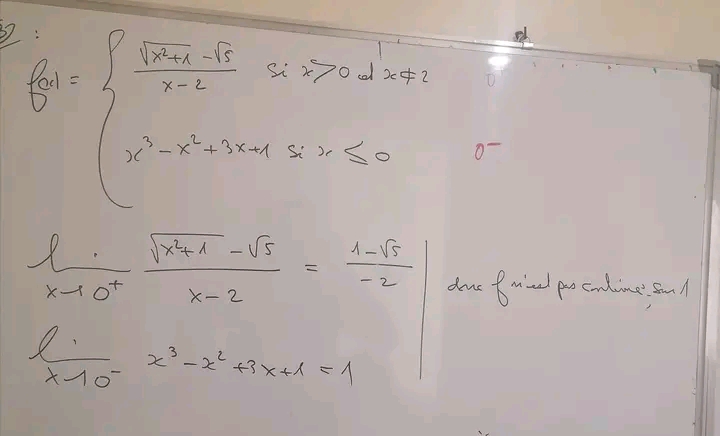 32 :
f(x) = { (√(x²+1) - √5) / (x - 2) si x > 0 et x ≠ 2
x³ - x² + 3x + 1 si x ≤ 0 0⁻
lim x→0⁺ (√(x²+1) - √5) / (x - 2) = (1 - √5) / -2
donc f n'est pas continue
lim x→0⁻ x³ - x² + 3x + 1 = 1